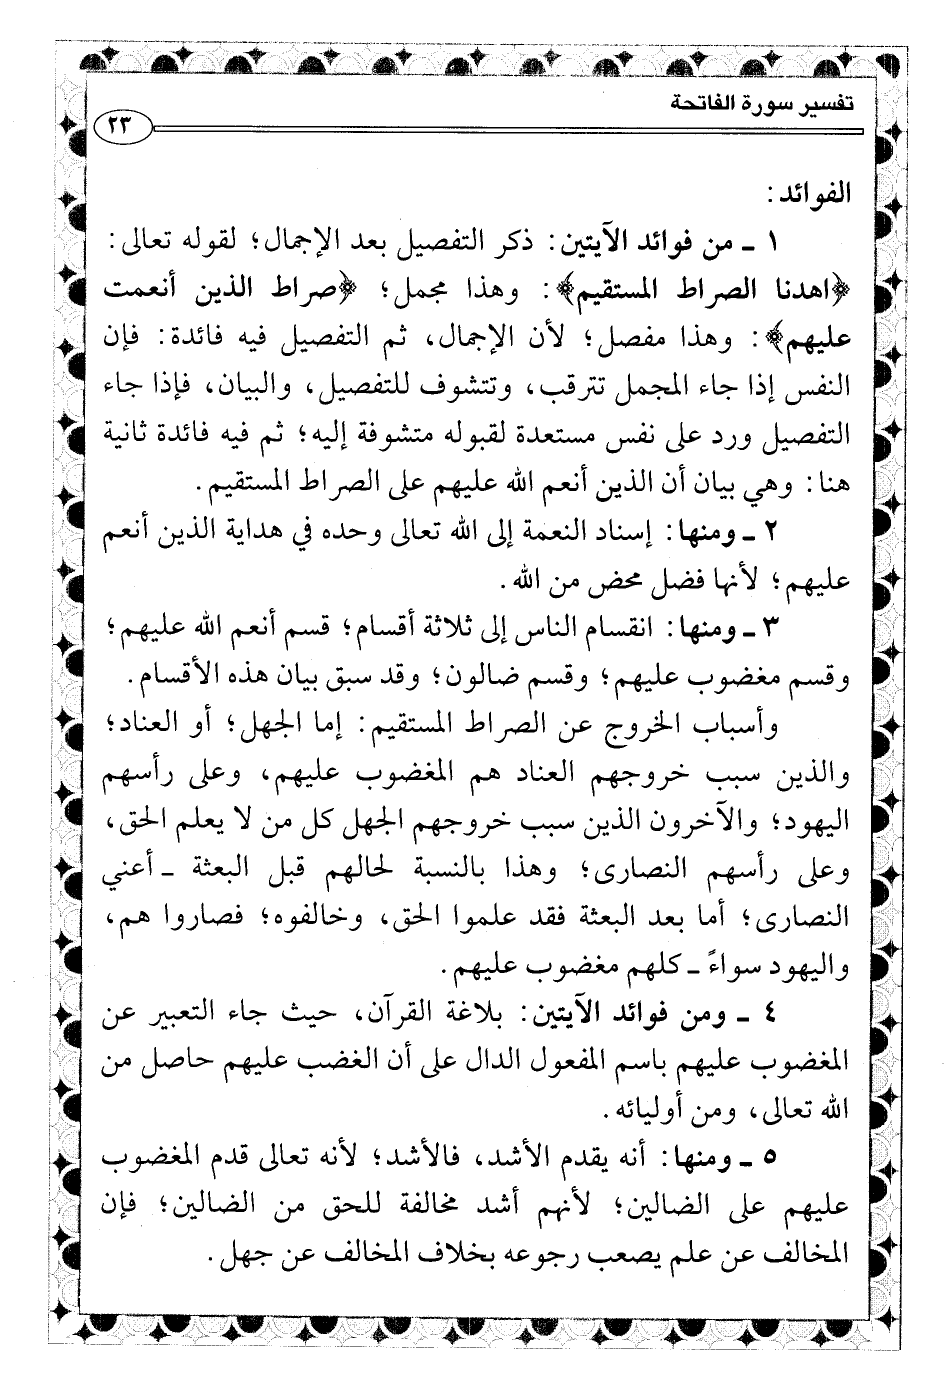 تفسير سورة الفاتحة
٢٣
الفوائد:
١ ـ من فوائد الآيتين: ذكر التفصيل بعد الإجمال؛ لقوله تعالى:
﴿اهدنا الصراط المستقيم﴾: وهذا مجمل؛ ﴿صراط الذين أنعمت
عليهم﴾: وهذا مفصل؛ لأن الإجمال، ثم التفصيل فيه فائدة: فإن
النفس إذا جاء المجمل تترقب، وتتشوف للتفصيل، والبيان، فإذا جاء
التفصيل ورد على نفس مستعدة لقبوله متشوفة إليه؛ ثم فيه فائدة ثانية
هنا: وهي بيان أن الذين أنعم الله عليهم على الصراط المستقيم.
٢ ـ ومنها: إسناد النعمة إلى الله تعالى وحده في هداية الذين أنعم
عليهم؛ لأنها فضل محض من الله.
٣ ـ ومنها: انقسام الناس إلى ثلاثة أقسام؛ قسم أنعم الله عليهم؛
وقسم مغضوب عليهم؛ وقسم ضالون؛ وقد سبق بيان هذه الأقسام.
وأسباب الخروج عن الصراط المستقيم: إما الجهل؛ أو العناد؛
والذين سبب خروجهم العناد هم المغضوب عليهم، وعلى رأسهم
اليهود؛ والآخرون الذين سبب خروجهم الجهل كل من لا يعلم الحق،
وعلى رأسهم النصارى؛ وهذا بالنسبة لحالهم قبل البعثة ـ أعني
النصارى؛ أما بعد البعثة فقد علموا الحق، وخالفوه؛ فصاروا هم،
واليهود سواءً ـ كلهم مغضوب عليهم.
٤ ـ ومن فوائد الآيتين: بلاغة القرآن، حيث جاء التعبير عن
المغضوب عليهم باسم المفعول الدال على أن الغضب عليهم حاصل من
الله تعالى، ومن أوليائه.
٥ ـ ومنها: أنه يقدم الأشد، فالأشد؛ لأنه تعالى قدم المغضوب
عليهم على الضالين؛ لأنهم أشد مخالفة للحق من الضالين؛ فإن
المخالف عن علم يصعب رجوعه بخلاف المخالف عن جهل.